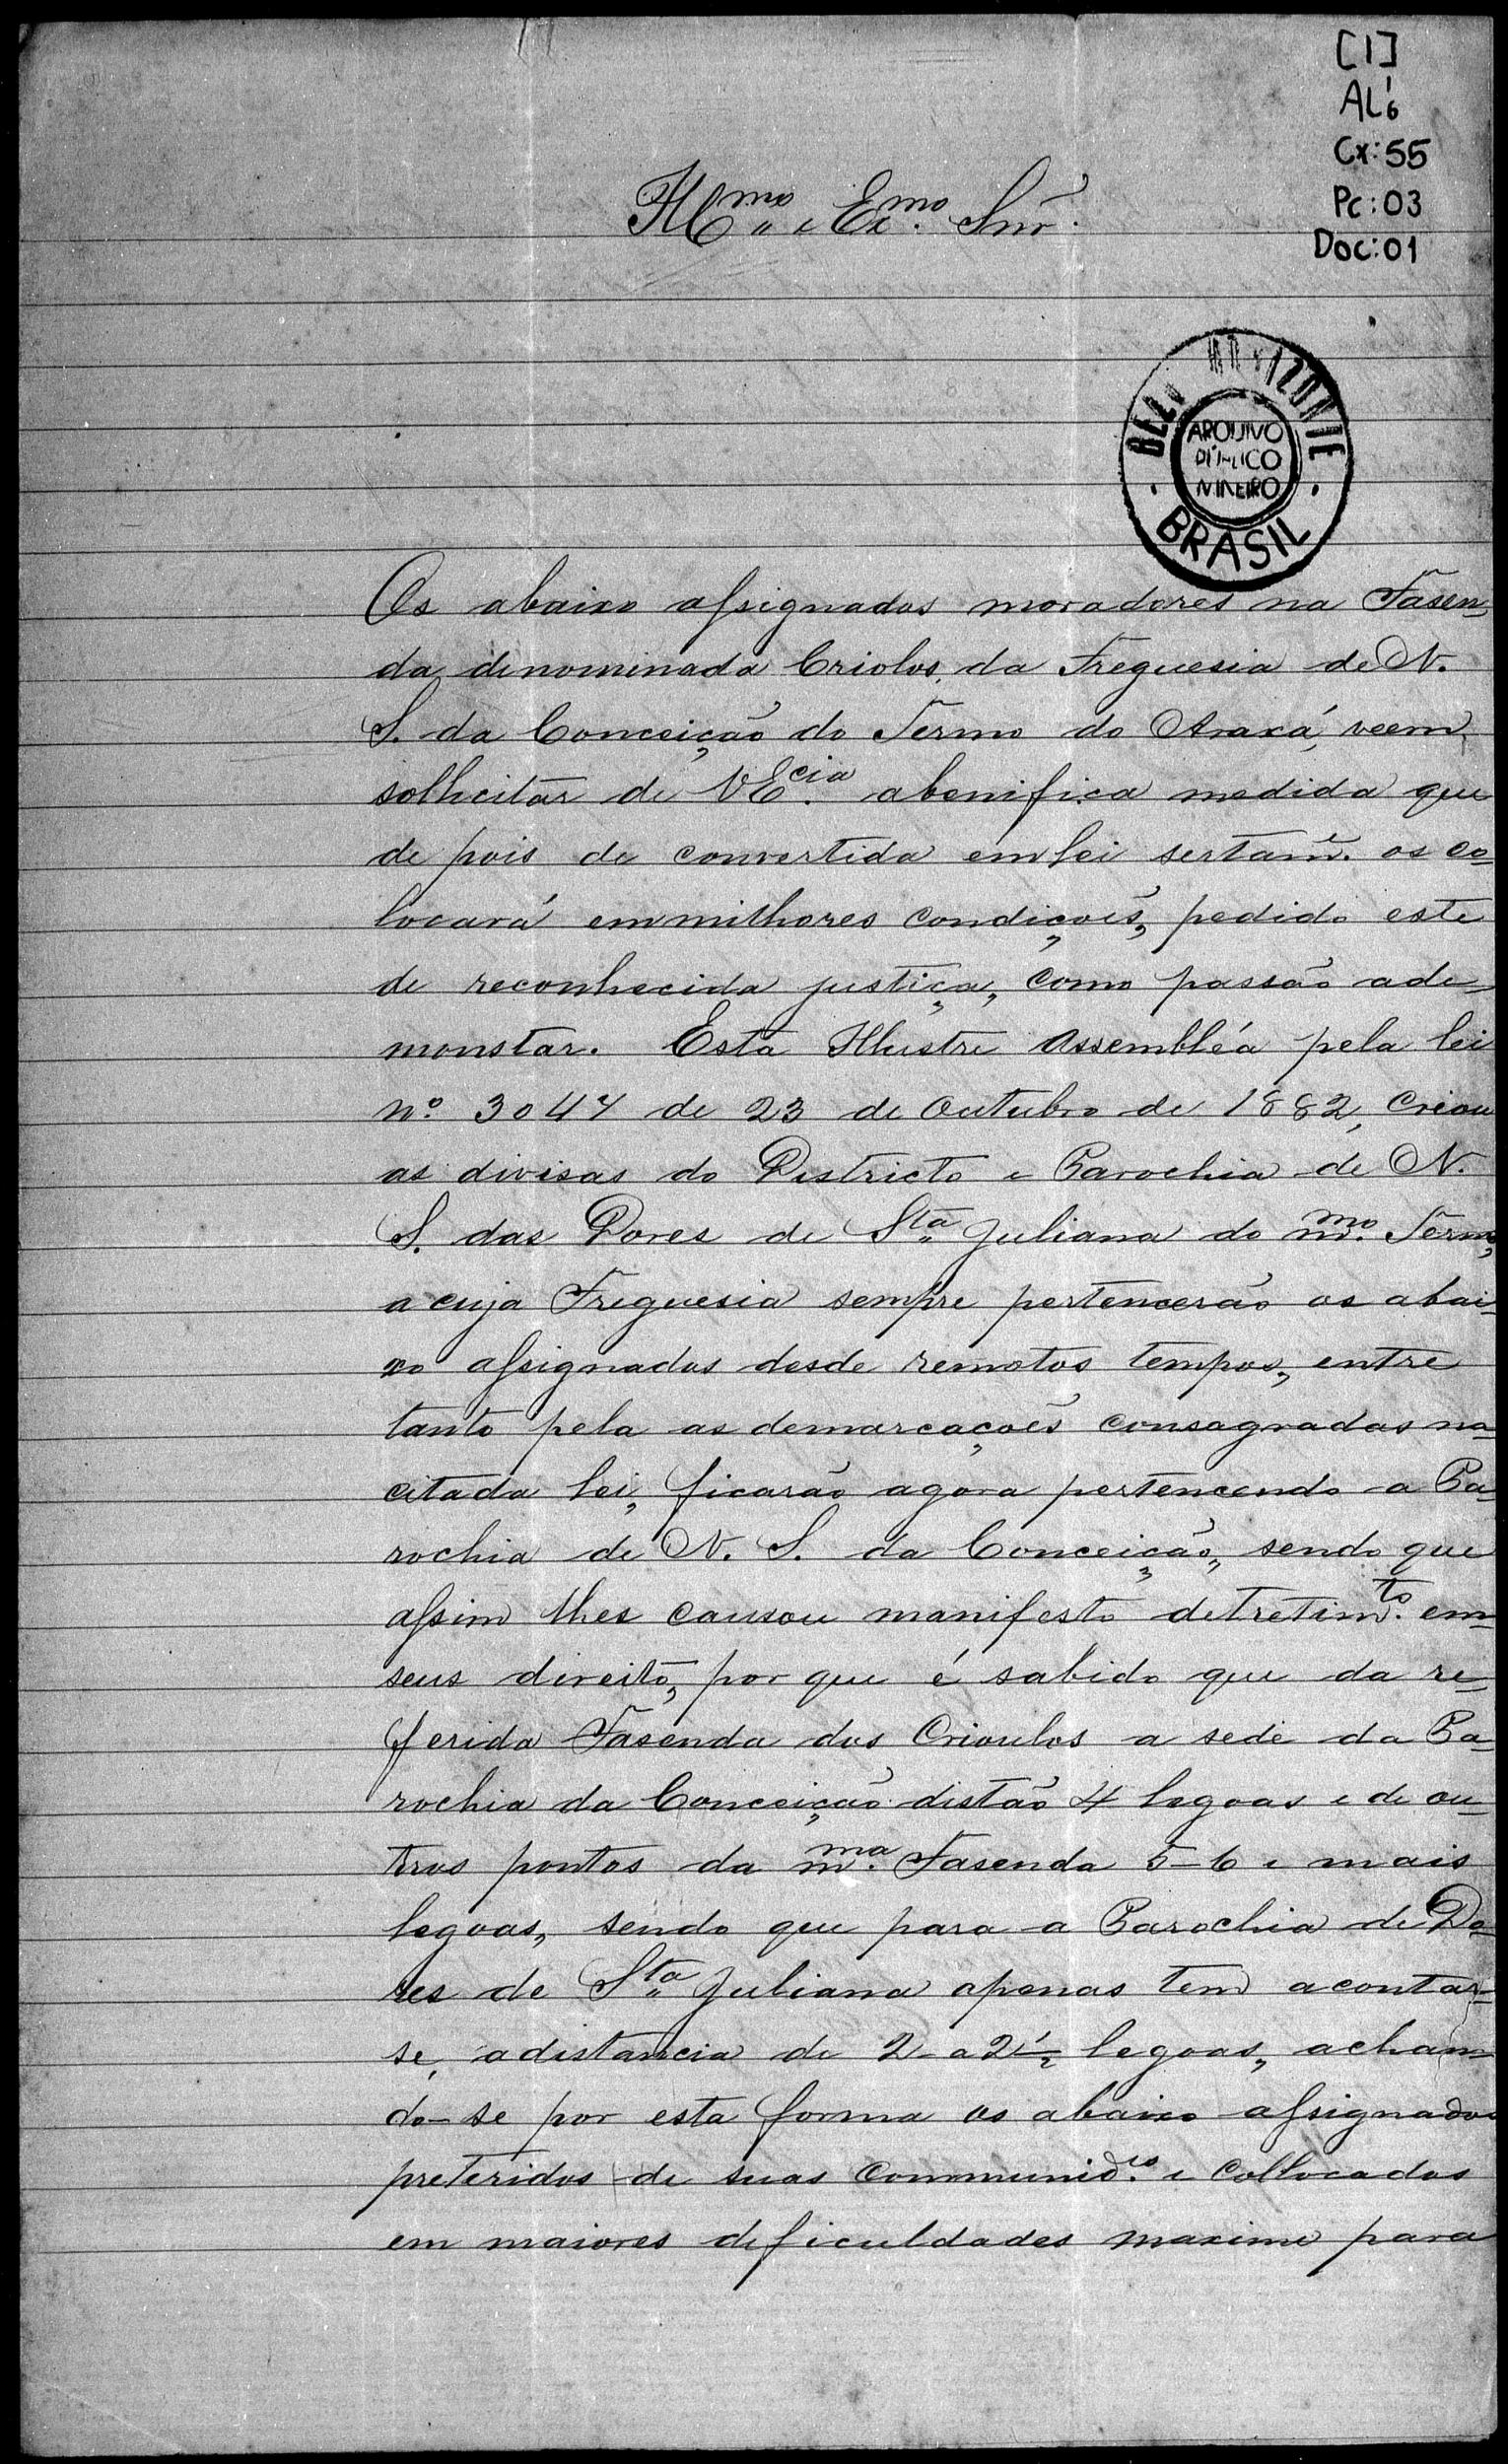 [1]
AL 1/6
Cx: 55
Pc: 03
Doc: 01
Illmo. e Exmo. Snr.
BELO HORIZONTE
ARQUIVO
PÚBLICO
MINEIRO
BRASIL
Os abaixo assignados moradores na Fasen-
da denominada Criolos, da Freguesia de N.
S. da Conceição do Termo do Araxá, veem
sollicitar de VEcia. abenifica medida que
de pois de convertida em lei sertamẽ. os co-
locará em milhores condiçoẽs, pedido este
de reconhecida justiça, como passão a de-
monstar. Esta Illustre Assembléa pela lei
nº 3047 de 23 de Outubro de 1882, creou
as divisas do Destricto e Parochia de N.
S. das Dores de Sta. Juliana do mmo. Termo,
a cuja Freguesia sempre pertencerão os abai-
xo assignados desde remotos tempos, entre
tanto pela as demarcaçoẽs consagradas na
citada lei, ficarão agora pertencendo a Pa-
rochia de N. S. da Conceição, sendo que
assim lhes causou manifesto detretimto. em
seus direito, por que é sabido que da re-
ferida Fasenda dos Crioulos a sede da Pa-
rochia da Conceição distão 4 legoas e de ou-
tros pontos da mma. Fasenda 5-6 e mais
legoas, sendo que para a Parochia de Do-
res de Sta. Juliana apenas tem a contar-
se, a distancia de 2 a 2 1/2 legoas, achan-
do-se por esta forma os abaixo assignados
preteridos de suas communid.es e collocados
em maiores deficuldades maxime para